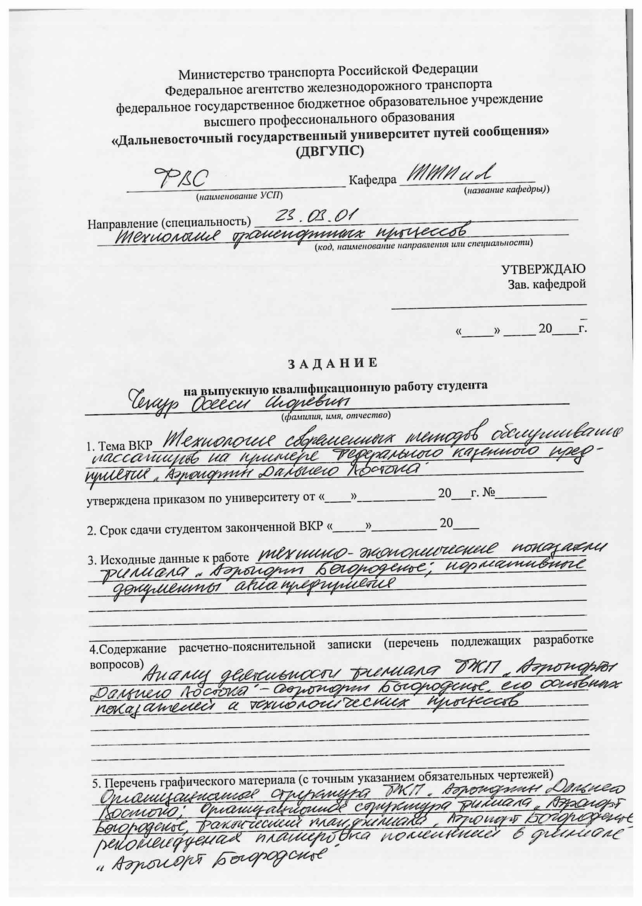 Министерство транспорта Российской Федерации
Федеральное агентство железнодорожного транспорта
федеральное государственное бюджетное образовательное учреждение
высшего профессионального образования
«Дальневосточный государственный университет путей сообщения»
(ДВГУПС)
ФВС Кафедра ТТПиЛ
(наименование УСП) (название кафедры))
Направление (специальность) 23.03.01
Технология транспортных процессов
(код, наименование направления или специальности)
УТВЕРЖДАЮ
Зав. кафедрой
«_____» _____ 20____г.
ЗАДАНИЕ
на выпускную квалификационную работу студента
(фамилия, имя, отчество)
1. Тема ВКР Технология современных методов обслуживания
пассажиров на примере Федерального казенного пред-
приятия „Аэропорты Дальнего Востока"
утверждена приказом по университету от «____»____________ 20___г. №________
2. Срок сдачи студентом законченной ВКР «_____»__________ 20____
3. Исходные данные к работе технико-экономические показатели
филиала „Аэропорт Богородское", нормативные
документы авиапредприятия
4.Содержание расчетно-пояснительной записки (перечень подлежащих разработке
вопросов) Анализ деятельности филиала ФКП „Аэропорты
Дальнего Востока" – аэропорт Богородское, его основных
показателей и технологических процессов
5. Перечень графического материала (с точным указанием обязательных чертежей)
Организационная структура ФКП „Аэропорты Дальнего
Востока", Организационная структура филиала „Аэропорт
Богородское", фактический план филиала „Аэропорт Богородское",
рекомендуемая планировка помещений в филиале
„Аэропорт Богородское"